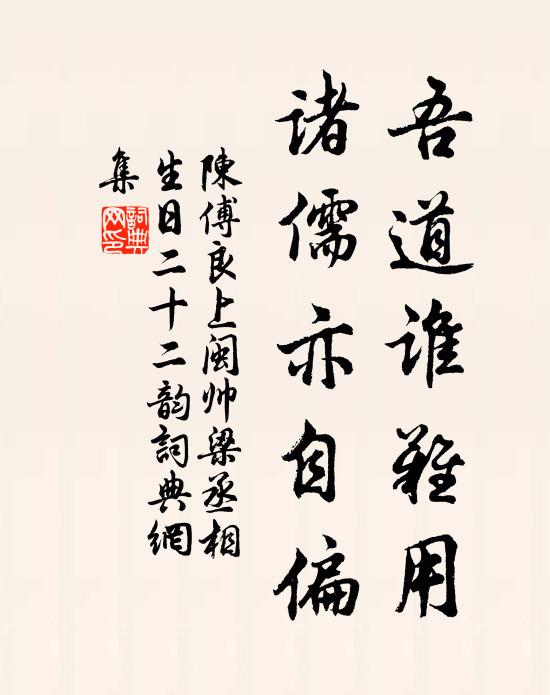 吾道谁難用
諸儒亦自偏
陳傅良上闽帅梁丞相
生日二十二韵詞典網
集
詞典網印